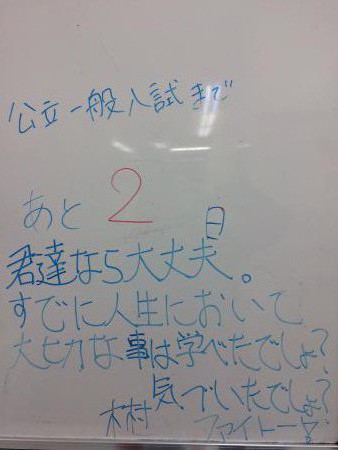 公立一般入試まで
あと 2 日
君達なら大丈夫。
すでに人生において
大切な事は学べたでしょ?
気づいたでしょ?
木村 ファイトー!